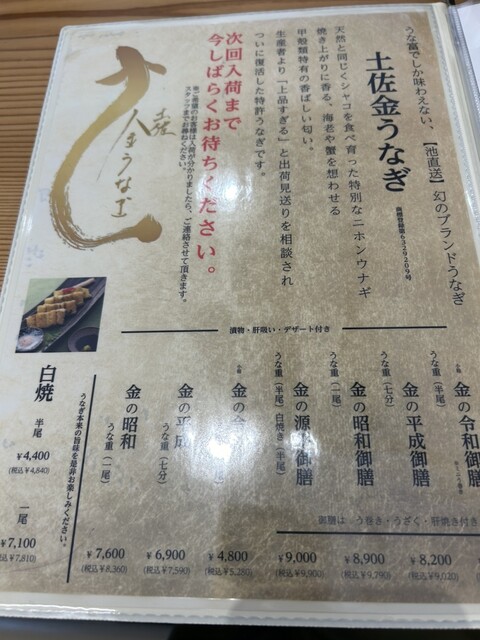 うな富でしか味わえない、【池直送】幻のブランドうなぎ
土佐金うなぎ
商標登録第6329209号
天然と同じくシャコを食べ育った特別なニホンウナギ
焼き上がりに香る、海老や蟹を想わせる
甲殻類特有の香ばしい匂い。
生産者より「上品すぎる」と出荷見送りを相談され
ついに復活した特許うなぎです。
次回入荷まで
今しばらくお待ちください。
※ご希望のお客様は入荷が分かりましたら、ご連絡させて頂きます。
スタッフまでお尋ねください。
土佐
金うなぎ
漬物・肝吸い・デザート付き
金の令和御膳
¥8,200
(税込¥9,020)
金の平成御膳
うな重(七分)
うな重(半尾)
¥8,900
(税込¥9,790)
金の昭和御膳
うな重(一尾)
¥9,000
(税込¥9,900)
金の源平御膳
うな重(半尾)白焼き(半尾)
御膳は うまき・うざく・肝焼き付き
金の
¥4,800
(税込¥5,280)
金の平成
うな重(七分)
¥6,900
(税込¥7,590)
金の昭和
うな重(一尾)
¥7,600
(税込¥8,360)
うなぎ本来の旨味を是非お楽しみください。
白焼
半尾
¥4,400
(税込¥4,840)
一尾
¥7,100
(税込¥7,810)